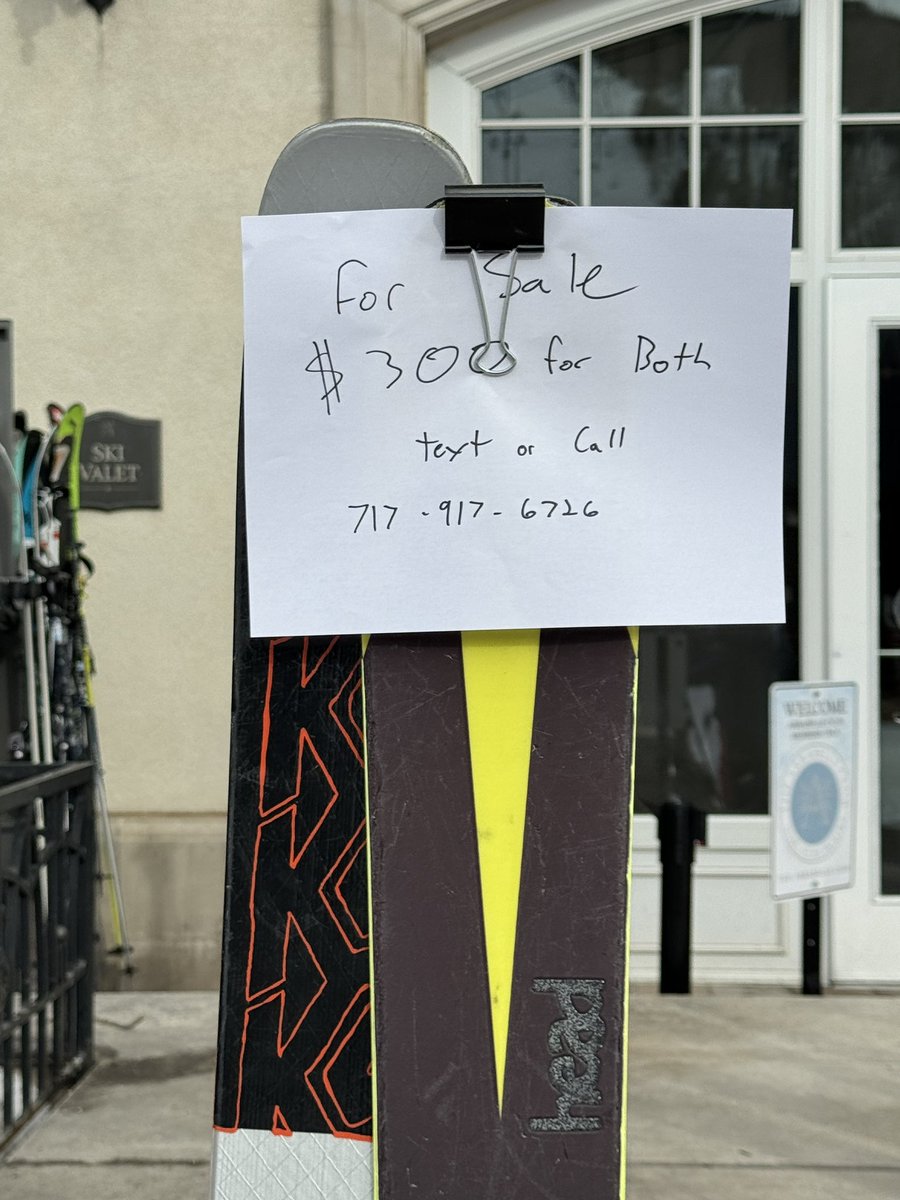 For Sale
$300 for Both
text or Call
717-917-6726
SKI
VALET
WELCOME
head